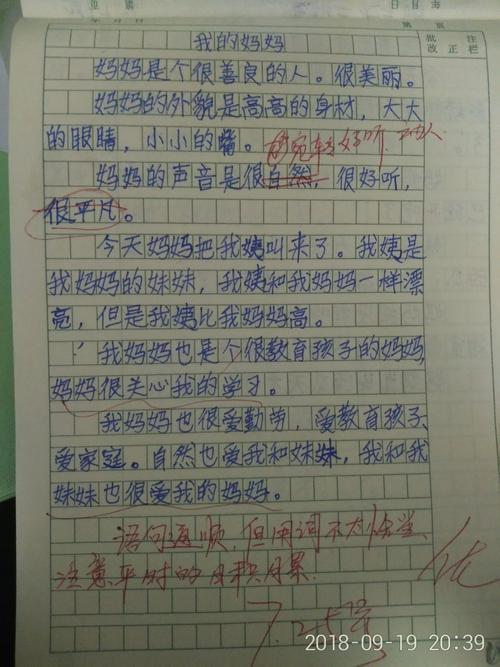 批注
页
改正栏
我的妈妈
妈妈是个很善良的人。很美丽。
妈妈的外貌是高高的身材,大大
的眼睛,小小的嘴。
好听
妈妈的声音是很自然,很好听,
很平凡。
今天妈妈把我姨叫来了。我姨是
我妈妈的妹妹,我姨和我妈妈一样漂
亮,但是我姨比我妈妈高。
我妈妈也是个很教育孩子的妈妈,
妈妈很关心我的学习。
我妈妈也很爱勤劳,爱教育孩子、
爱家庭。自然也爱我和妹妹,我和我
妹妹也很爱我的妈妈。
语句通顺,但用词不太恰当,
注意平时的日积月累
优
2018-09-19 20:39